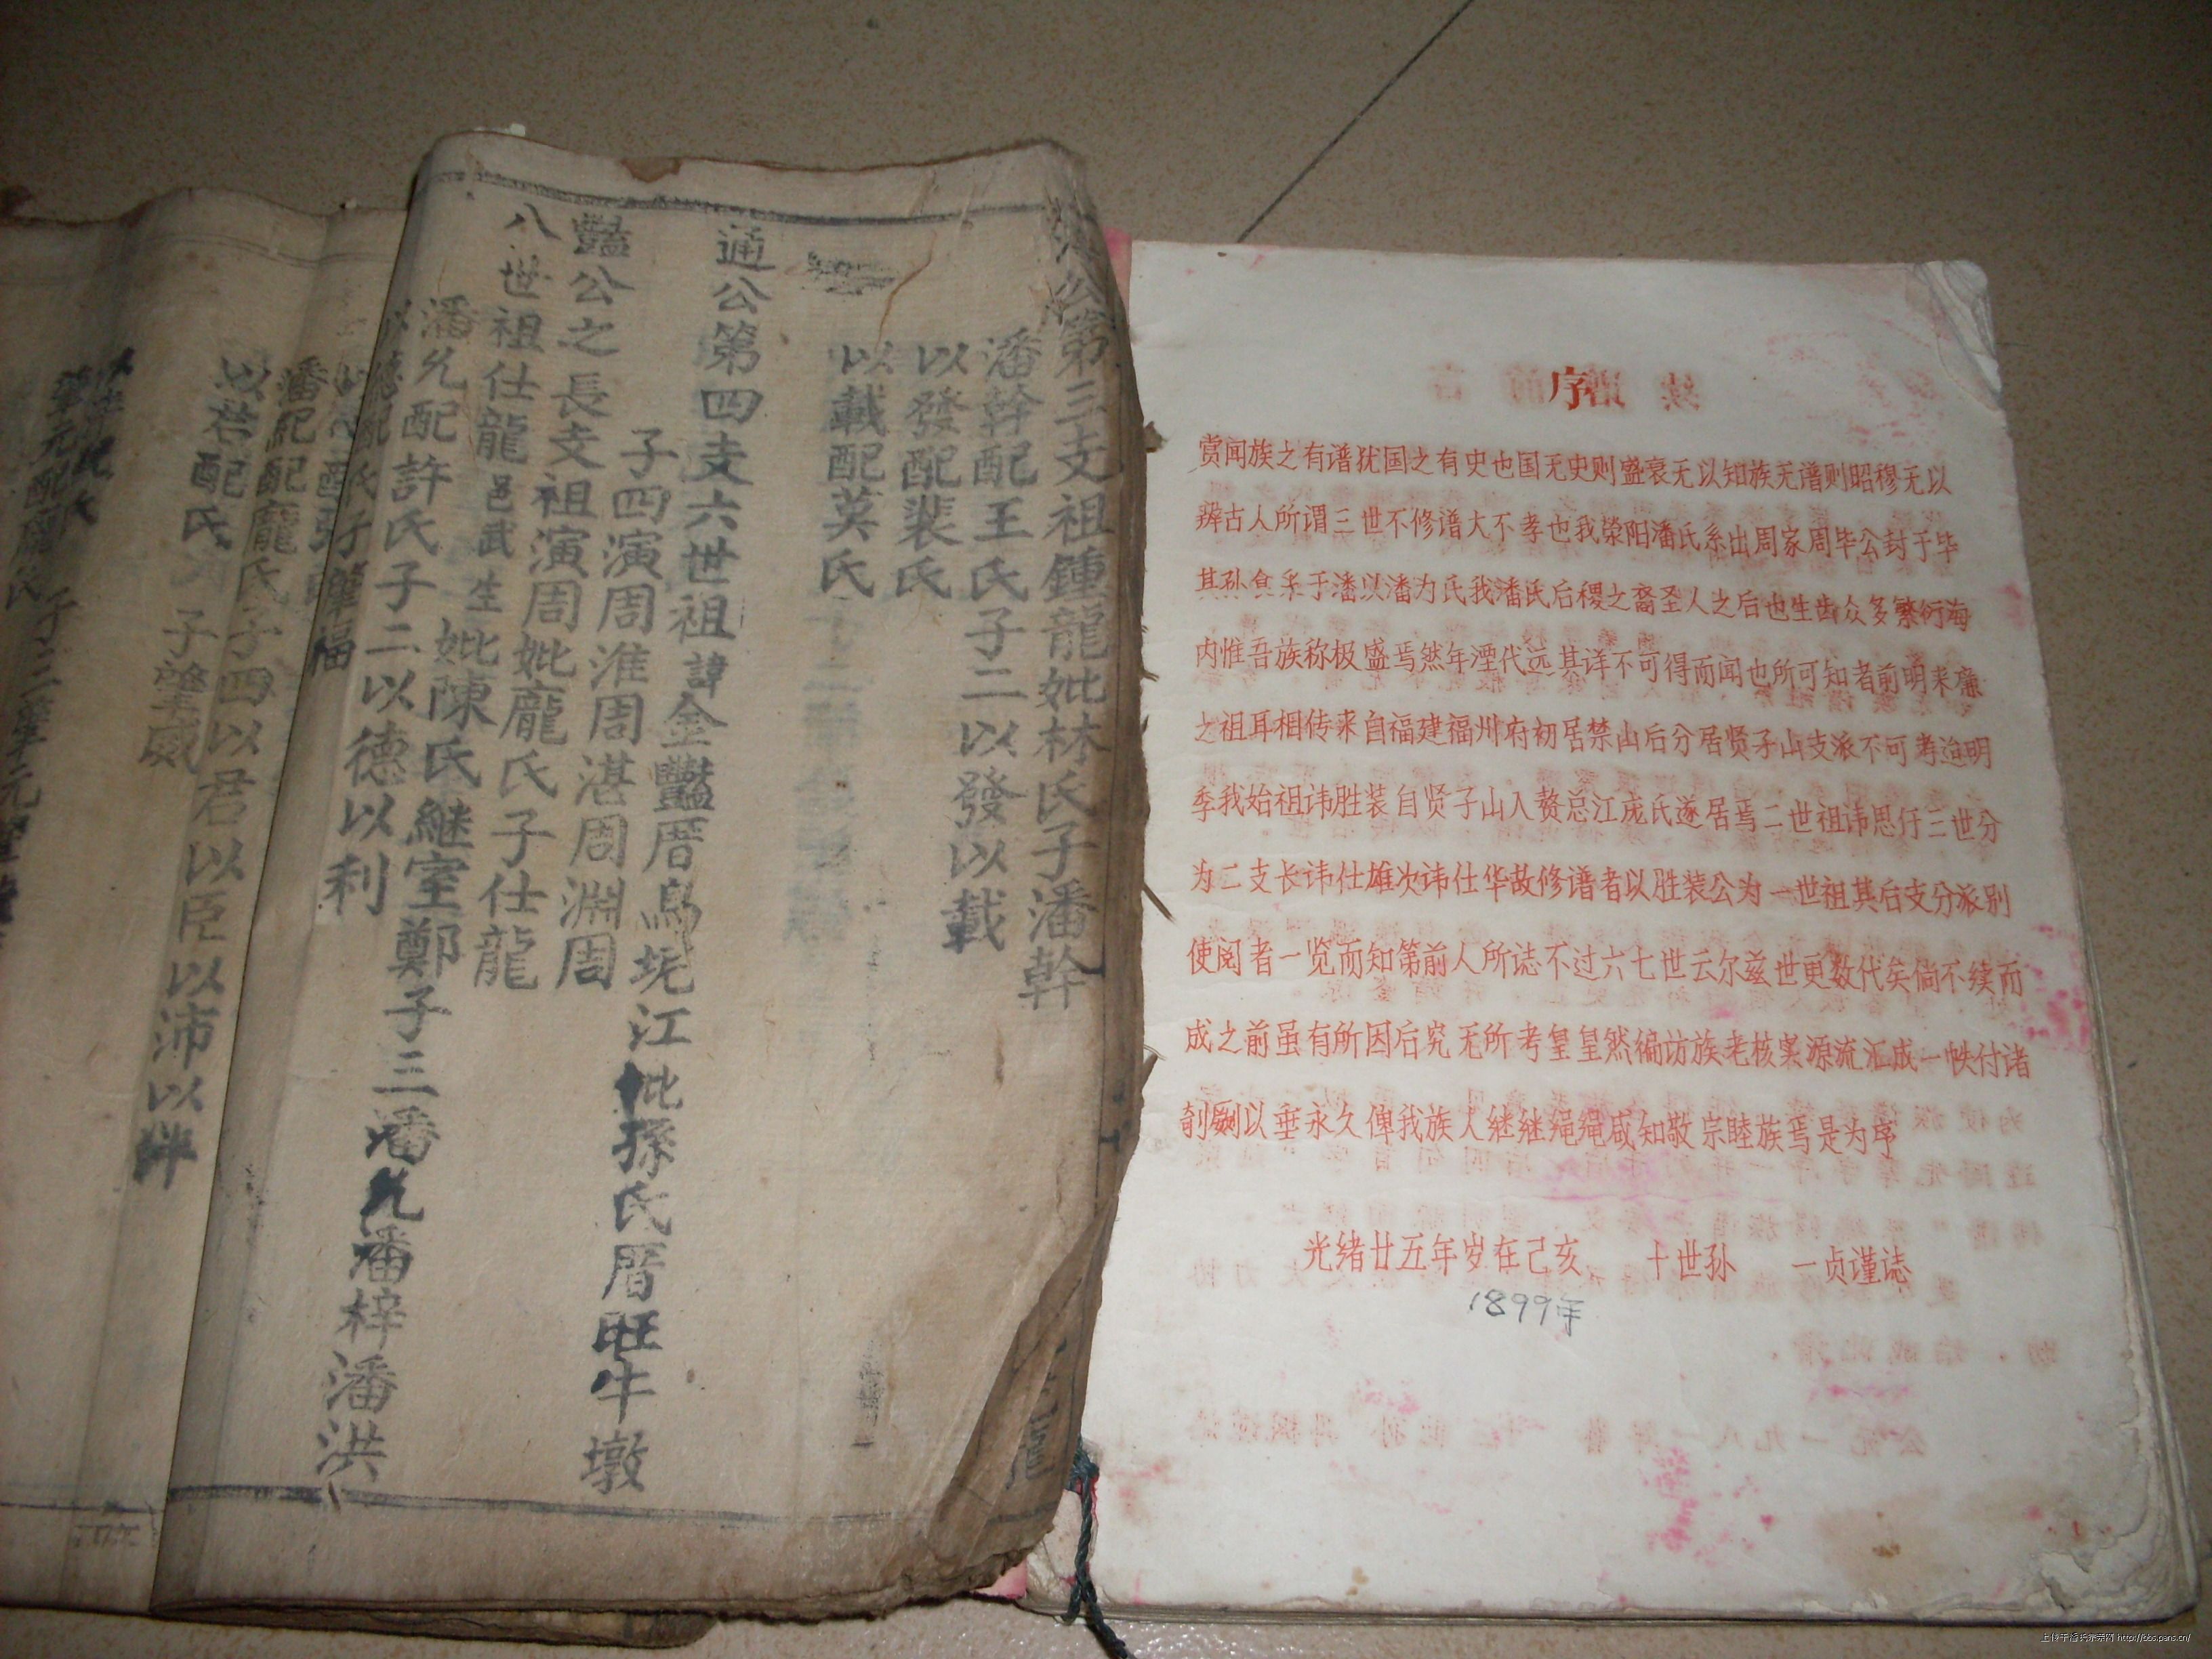 公第三支祖鍾龍妣林氏子潘幹
潘幹配王氏子二以發以載
以發配裴氏
以載配莫氏
通公第四支六世祖諱金豔厝鳥坭江妣孫氏厝旺牛墩
子四演周淮周湛周淵周
豔公之長支祖演周妣龐氏子仕龍
八世祖仕龍邑武生妣陳氏継室鄭子三潘允潘梓潘洪
潘允配許氏子二以德以利
潘配龐氏子四以君以臣以沛以
以君配氏 子肇威
華元配龐氏子二
序
赏闻族之有谱犹国之有史也国无史则盛衰无以知族无谱则昭穆无以
辨古人所谓三世不修谱大不孝也我荥阳潘氏系出周家周毕公封于毕
其孙食采于潘以潘为氏我潘氏后稷之裔圣人之后也生齿众多繁衍海
内惟吾族称极盛焉然年湮代远其详不可得而闻也所可知者前明来廉
之祖耳相传来自福建福州府初居禁山后分居贤子山支派不可考迨明
季我始祖讳胜装自贤子山入赘总江庞氏遂居焉二世祖讳思仔三世分
为二支长讳仕雄次讳仕华故修谱者以胜装公为一世祖其后支分派别
使阅者一览而知第前人所誌不过六七世云尔兹世更数代矣倘不续而
成之前虽有所因后究无所考皇皇然徧访族老核实源流汇成一帙付诸
剞劂以垂永久俾我族人继继绳绳咸知敬宗睦族焉是为序
光绪廿五年岁在己亥 十世孙 一贞谨誌
1899年
上传于潘氏宗亲网 http://bbs.pans.cn/